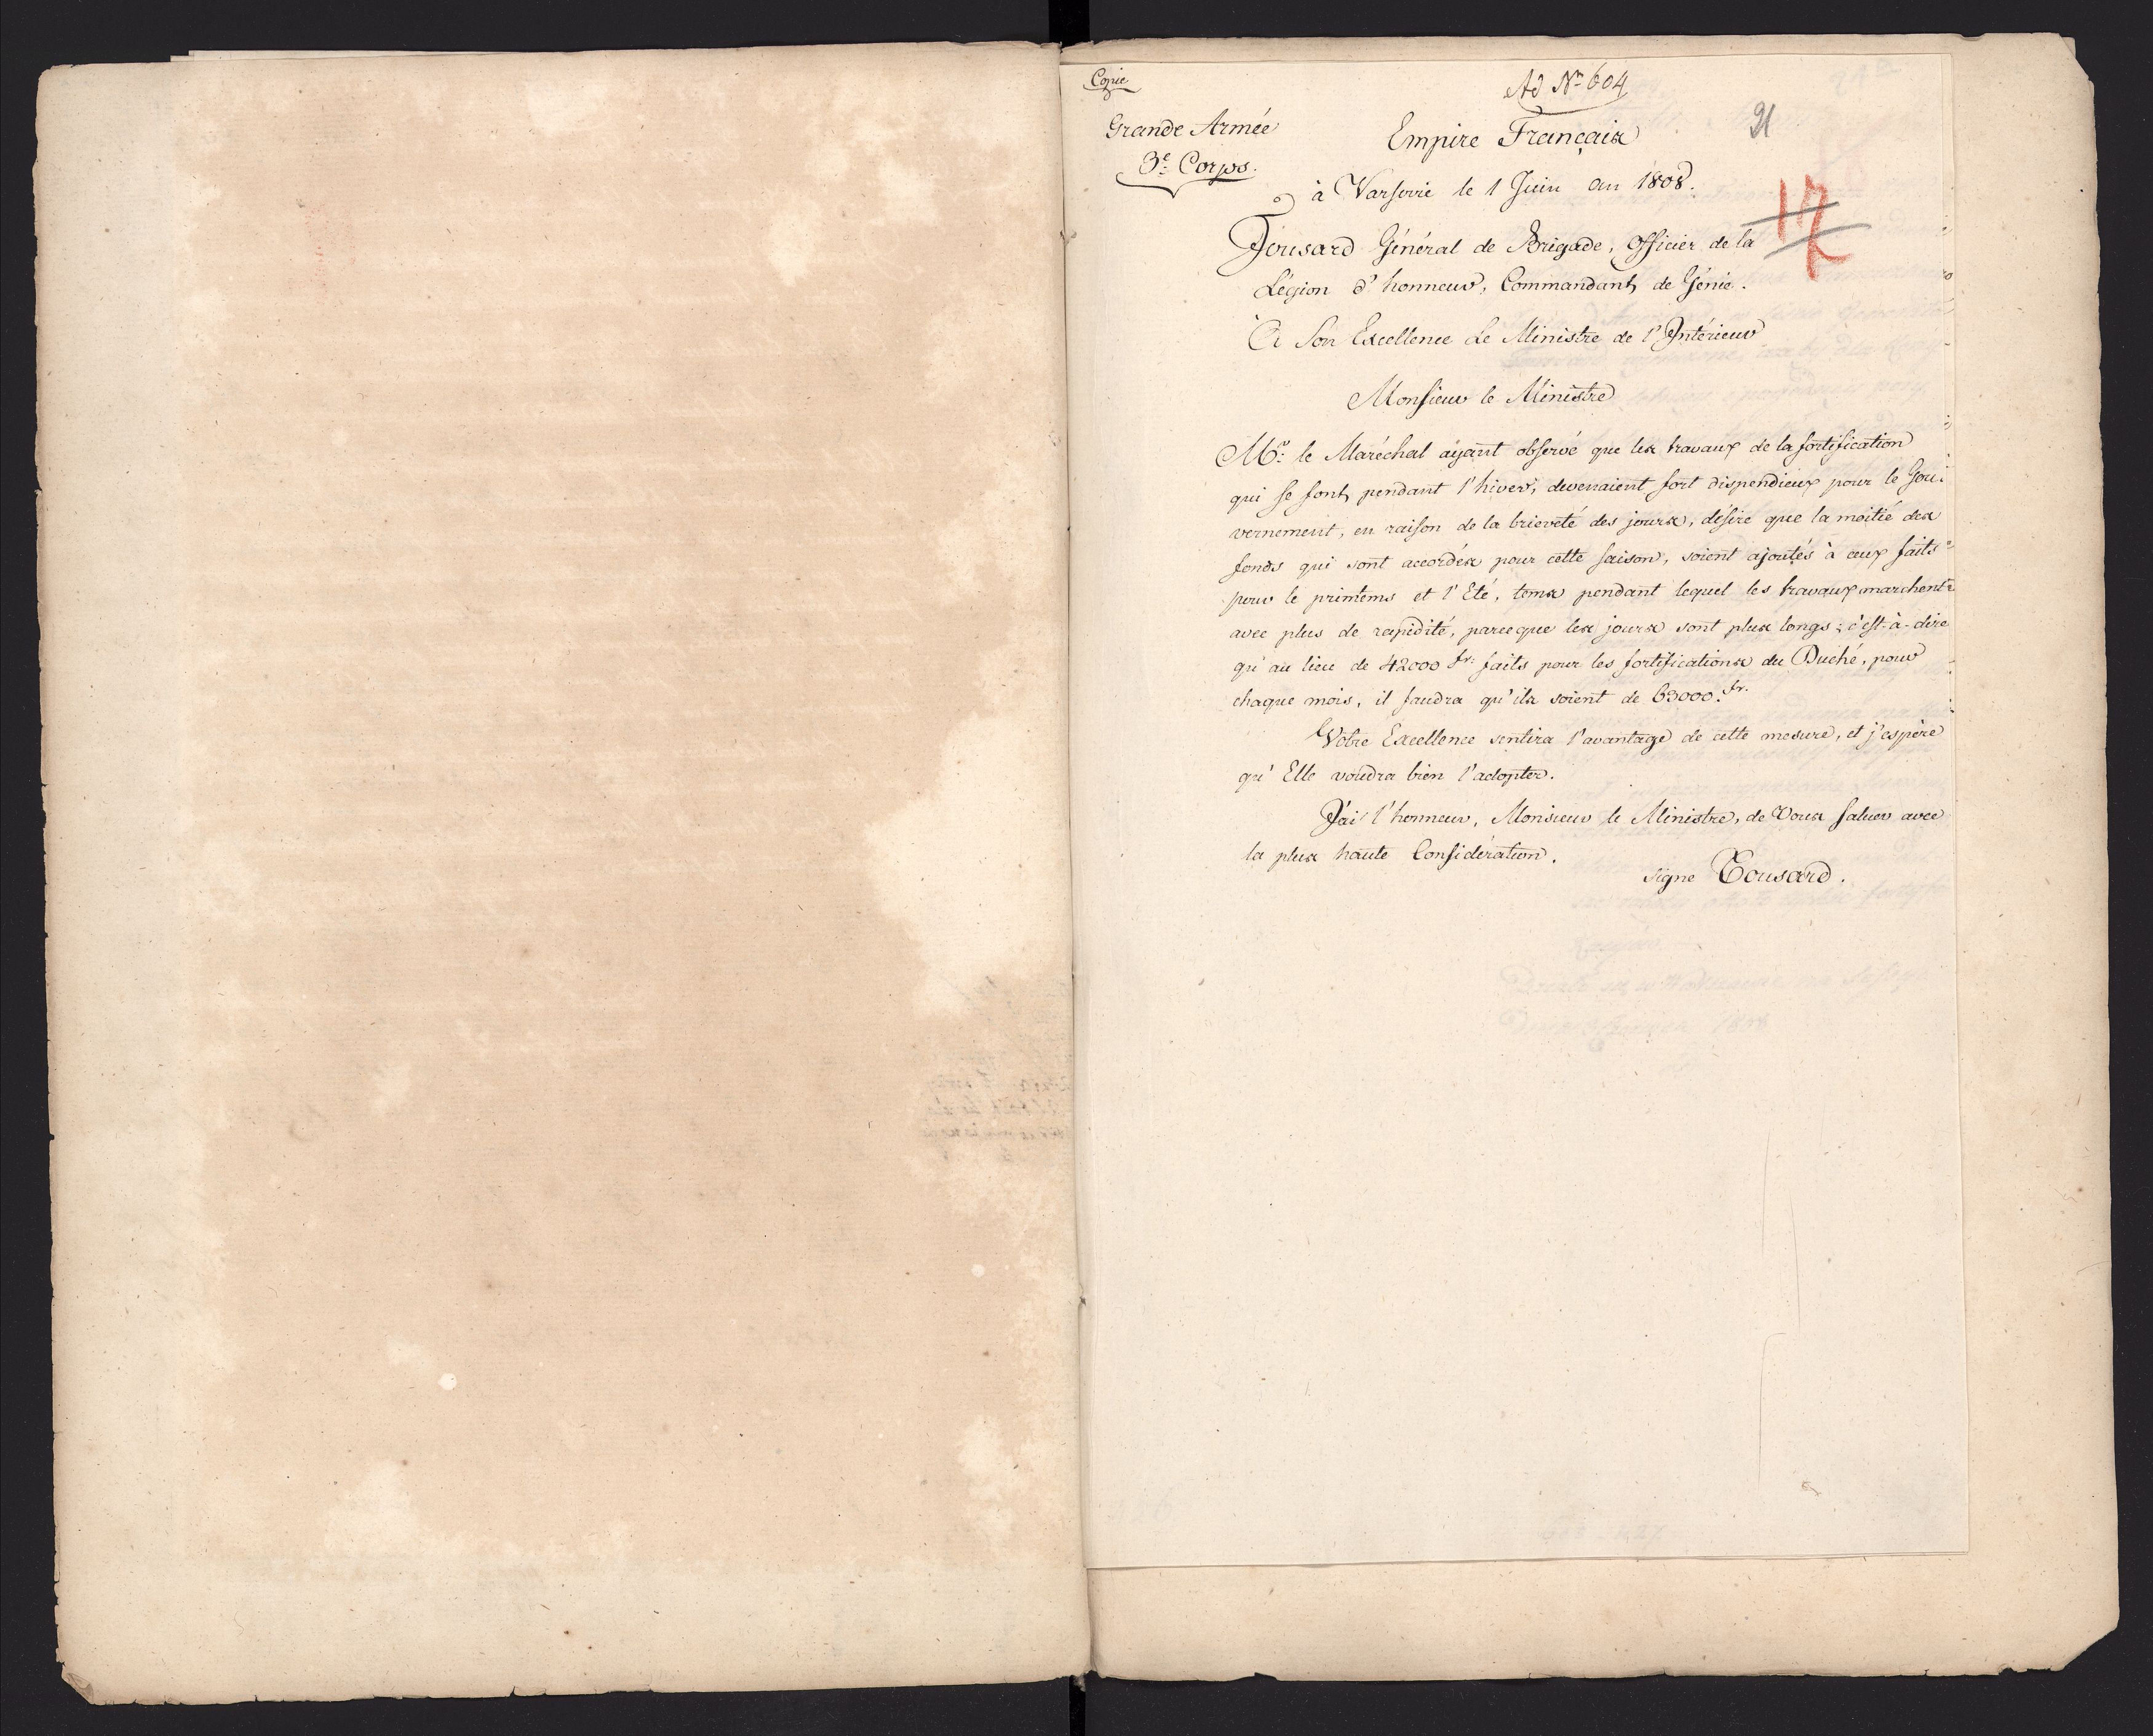 Copie
Ad Nº 604
21
Grande Armée
3e Corps.
Empire Français
à Varsovie le 1 Juin an 1808.
17
Tousard Général de Brigade, Officier de la
Légion d'honneur, Commandant de Génie.
A Son Excellence Le Ministre de l'Intérieur
Monsieur le Ministre
Mr. le Maréchal ayant observé que les travaux de la fortification
qui se font pendant l'hiver, devenaient fort dispendieux pour le Gou-
vernement, en raison de la brieveté des jours, désire que la moitié des
fonds qui sont accordés pour cette saison, soient ajoutés à ceux faits
pour le printems et l'Eté, tems pendant lequel les travaux marchent
avec plus de rapidité, parceque les jours sont plus longs; c'est-à-dire
qu'au lieu de 42000 fr. faits pour les fortifications du Duché, pour
chaque mois, il faudra qu'ils soient de 63000. fr.
Votre Excellence sentira l'avantage de cette mesure, et j'espère
qu'Elle voudra bien l'adopter.
J'ai l'honneur, Monsieur le Ministre, de Vous saluer avec
la plus haute Considération.
signe Tousard.